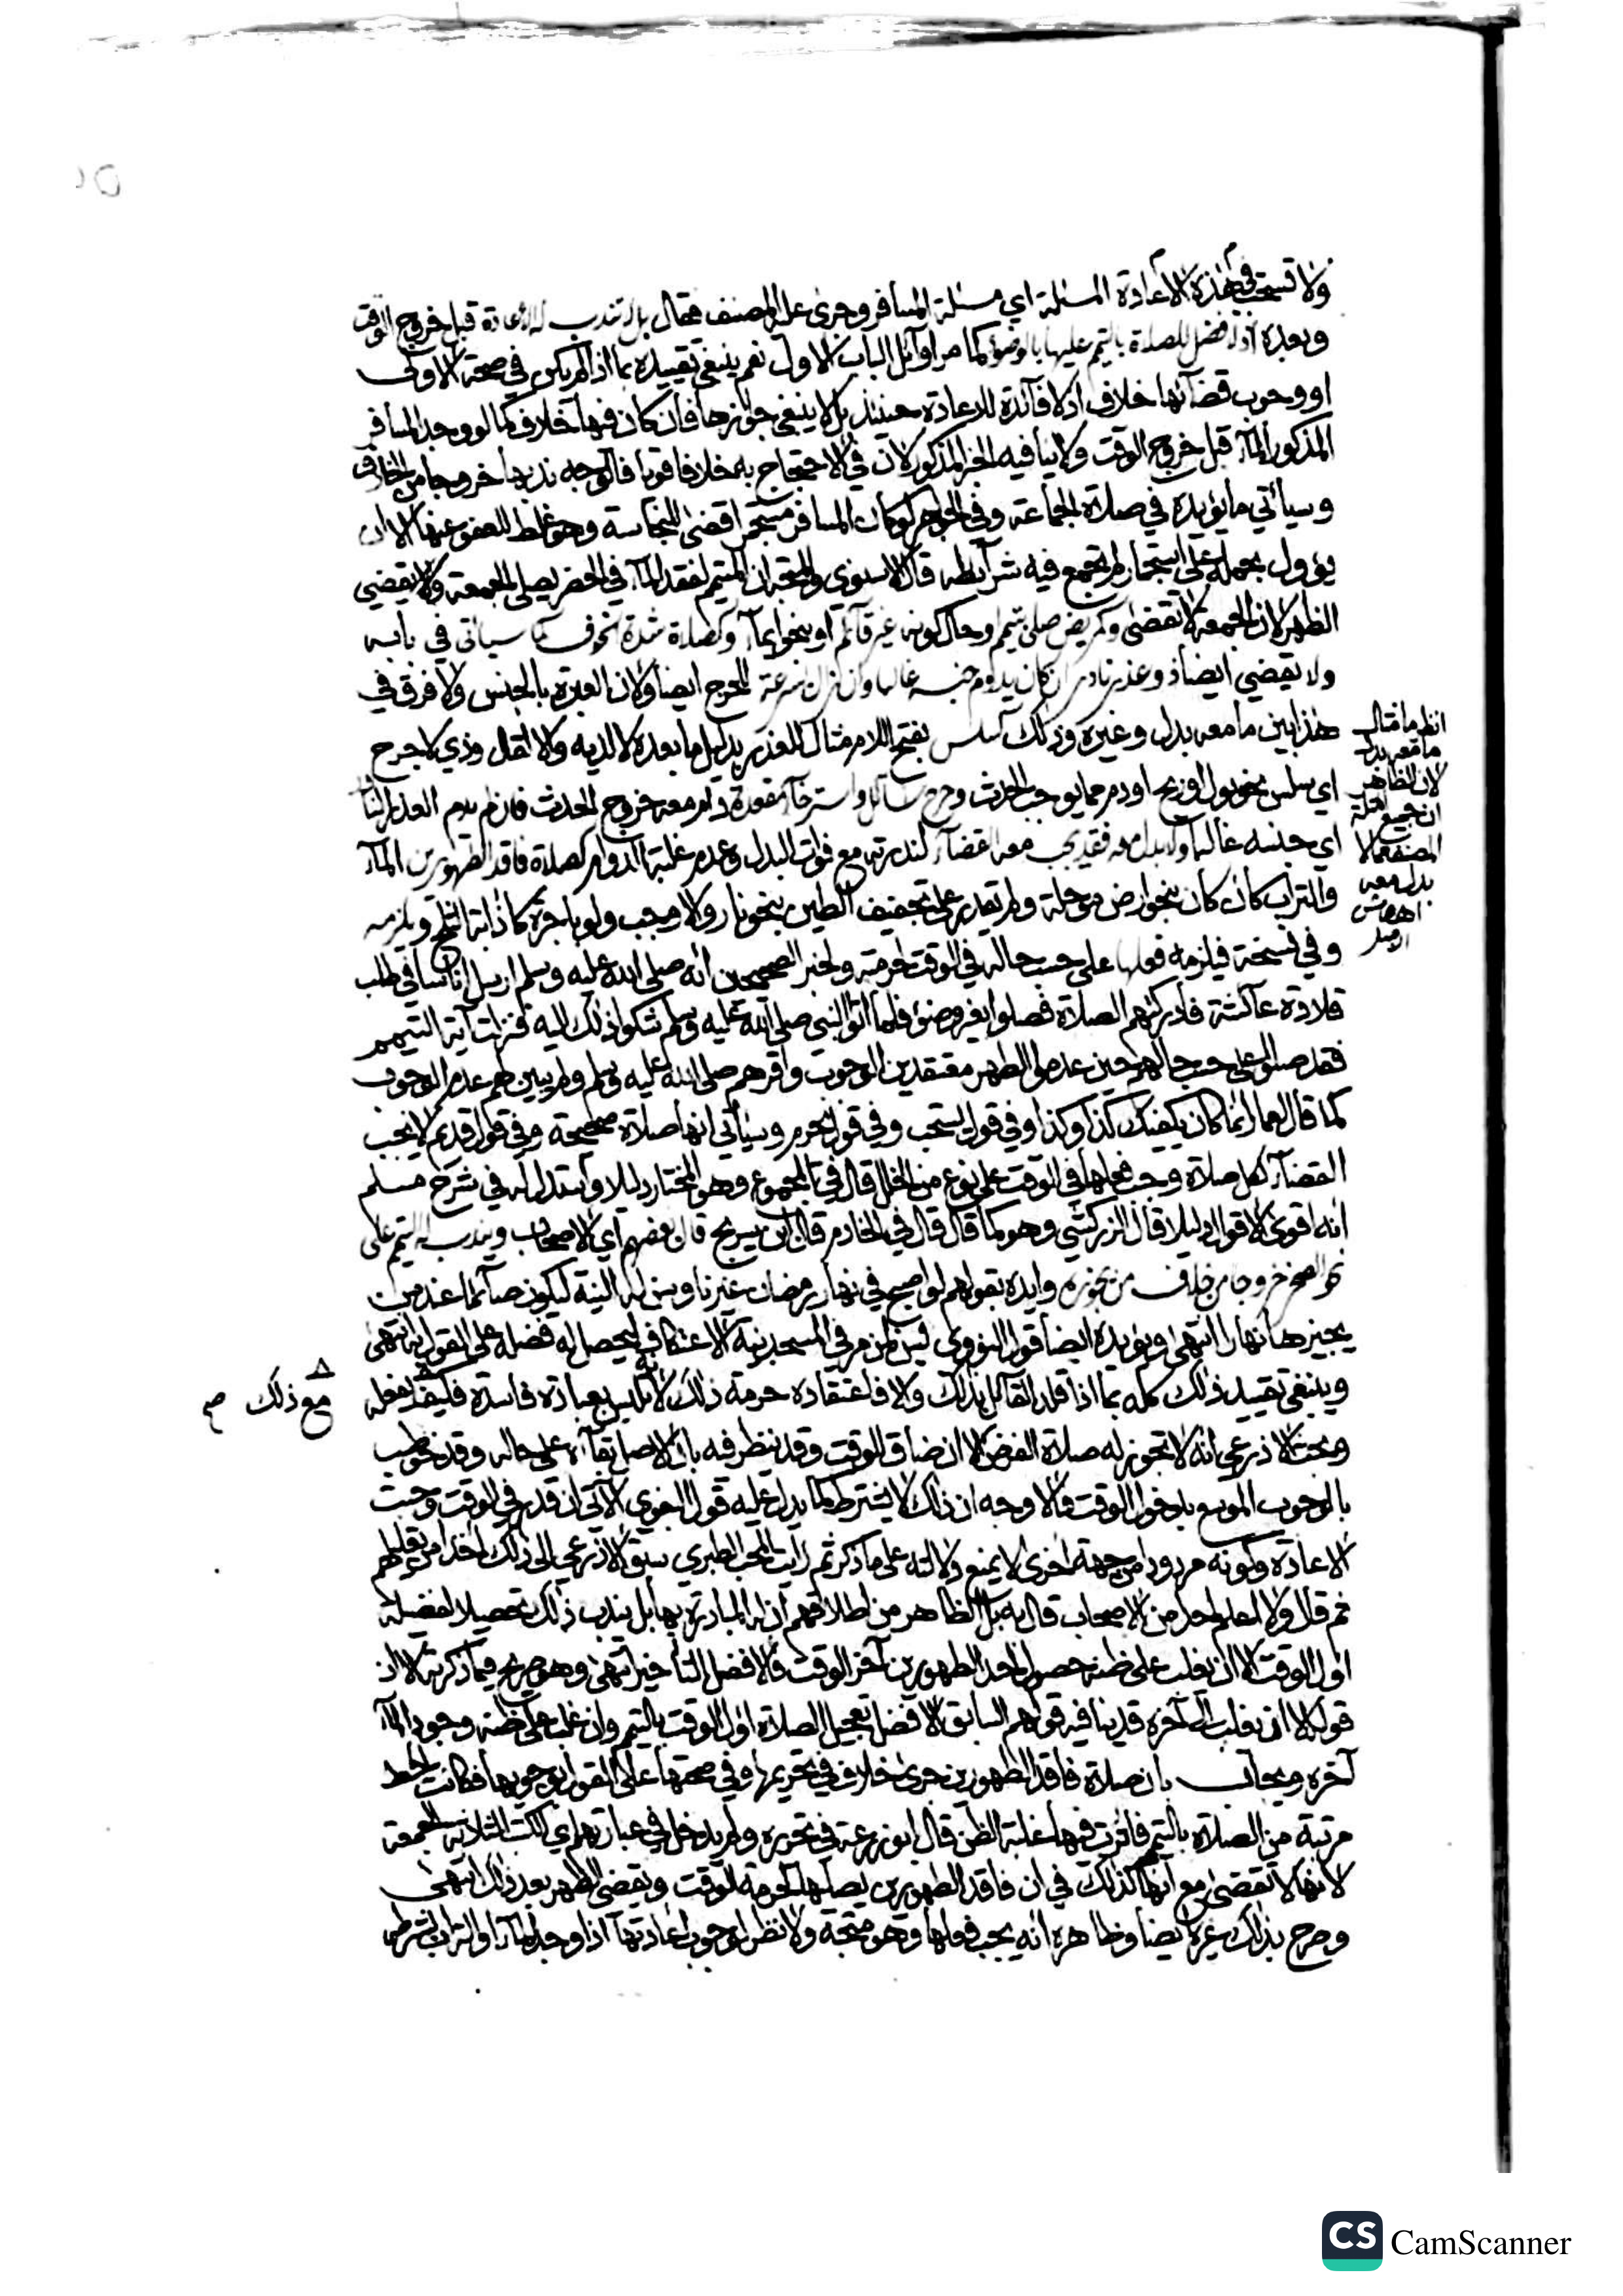 ولا تستحب في هذه الاعادة المسئلة اي مسئلة المسافر وجرى عليه المصنف فقال بل تندب له الاعادة قبل خروج الوقت
وبعده اذ لا فضل للصلاة بالتيم عليها بالوضوء كما مر اوائل الباب الاول نعم ينبغي تقييده بما اذا لم يكن في صحة الاولى
او وجوب قضائها خلاف اذ لا فائدة للاعادة حينئذ بل لا ينبغي جوازها فان كان فيها خلاف كما لو وجد المسافر
المذكور الماء قبل خروج الوقت ولا ينافيه الخبر المذكور لان في الاحتجاج به خلافا قويا فالوجه ندبها خروجا من الخلاف
وسيأتي ما يؤيده في صلاة الجماعة وفي الجواهر لو كان المسافر مستجمرا قضى للنجاسة وهو غلط للعفو عنها الا ان
يؤول بحمله على استجمار لم تجتمع فيه شرائطه قال الاسنوي والمتجه ان المتيم لفقد الماء في الحضر يصلي الجمعة ولا يقضي
الظهر لان الجمعة لا تقضى وكمريض صلى بتيمم او حال كونه غير قائم او بنحو ايماء وكصلاة شدة الخوف كما سيأتي في بابه
ولا يقضي ايضا ذو عذر نادر ان كان يدوم جنسه غالبا وان زال بسرعة للحرج ايضا ولان العبرة بالجنس ولا فرق في
هذا بين ما معه بدل وغيره وذلك كسلس بفتح اللام مثال للعذر بدليل ما بعده لا لذيه والا لقال وذي لا جرح
اي سلس بنحو بول او ريح او دم مما يوجب الحدث وجرح سائل او استرخاء مقعدة دام معه خروج الحدث فان لم يدم العذر النادر
اي جنسه غالبا ولا بدل معه فقد يجب معه القضاء لندرته مع فوات البدل وعدم غلبة الدوام كصلاة فاقد الطهورين الماء
والتراب كان كان بنحو ارض موحلة ولم يقدر على تجفيف الطين بنحو نار والا وجب ولو باجرة كاذابة الثلج ويلزمه
وفي نسخة فيلزمه فعلها على حسب حاله في الوقت لحرمته ولخبر الصحيحين انه صلى الله عليه وسلم ارسل اناسا في طلب
قلادة عائشة فادركتهم الصلاة فصلوا بغير وضوء فلما اتوا النبي صلى الله عليه وسلم شكوا ذلك اليه فنزلت آية التيمم
فقد صلوا على حسب حالهم حين عدموا المطهر معتقدين الوجوب واقرهم صلى الله عليه وسلم ولم يبين لهم عدم الوجوب
كما قال لعمار انما كان يكفيك كذا وكذا وفي قول يستحب وفي قول يحرم وسيأتي انها صلاة صحيحة وفي قول قديم لا يجب
القضاء لكل صلاة وجب فعلها في الوقت على نوع من الخلل قال في المجموع وهو المختار دليلا واستدل له في شرح مسلم
انه اقوى الاقوال دليلا قال الزركشي وهو كما قال قال في الخادم قال ابن سريج قال بعضهم اي الاصحاب ويندب له التيمم على
نحو الصخر خروجا من خلاف من يجوزه وايده بقولهم لو اصبح في نهار رمضان غير ناو يسن له النية ليكون صائما عند من
يجيزها نهارا انتهى ويؤيده ايضا قول النووي يسن لمن مر في المسجد بنية الاعتكاف ليحصل له فضله على القول به انتهى
وينبغي تقييد ذلك كله بما اذا قلد القائل بذلك والا فاعتقاده حرمة ذلك لانه تلبس بعبادة فاسدة فليقف لفعله
وبحث الاذرعي انه لا تجوز له صلاة الفرض الا ان ضاق الوقت وقد ينظر فيه بان الاصل بقاؤه على حاله وقد خوطب
بالوجوب الموسع بدخول الوقت فالاوجه ان ذلك لا يشترط كما يدل عليه قول البغوي الآتي ان قدر في الوقت وجبت
الاعادة وكونه مردودا من جهة اخرى لا يمنع دلالته على ما ذكر ثم رأيت المحب الطبري سبق الاذرعي الى ذلك اخذا من تعليلهم
ثم قال ولا اعلم احدا من الاصحاب قال به بل الظاهر من اطلاقهم ان له المبادرة بها بل يندب ذلك تحصيلا لفضيلة
اول الوقت الا ان يغلب على ظنه حصول احد الطهورين آخر الوقت فالافضل التأخير انتهى وهو صريح فيما ذكرته الا ان
قوله الا ان يغلب الى آخره قد ينافيه قولهم السابق الافضل تعجيل الصلاة اول الوقت بالتيمم وان غلب على ظنه وجود الماء
آخره ويجاب بان صلاة فاقد الطهورين جرى خلاف في تحريمها وفي صحتها على القول بوجوبها فكانت احط
مرتبة من الصلاة بالتيمم فاثرت فيها غلبة الظن قال ابو زرعة في تحريره ولم يدخل في عبارتهم اي الكتب الثلاثة الجمعة
لانها لا تقضى مع انها كذلك في ان فاقد الطهورين يصليها لحرمة الوقت ويقضي الظهر بعد ذلك انتهى
وصرح بذلك غيره ايضا وظاهره انه يجب فعلها وهو متجه ولا نظر لوجوب اعادتها اذا وجد الماء او التراب بشرطه
انظر ما مثال
ما معه بدل
لان الظاهر
ان جميع امثلة
المصنف مما لا
بدل معه
اهـ هامش
اصل
مع ذلك م
CamScanner